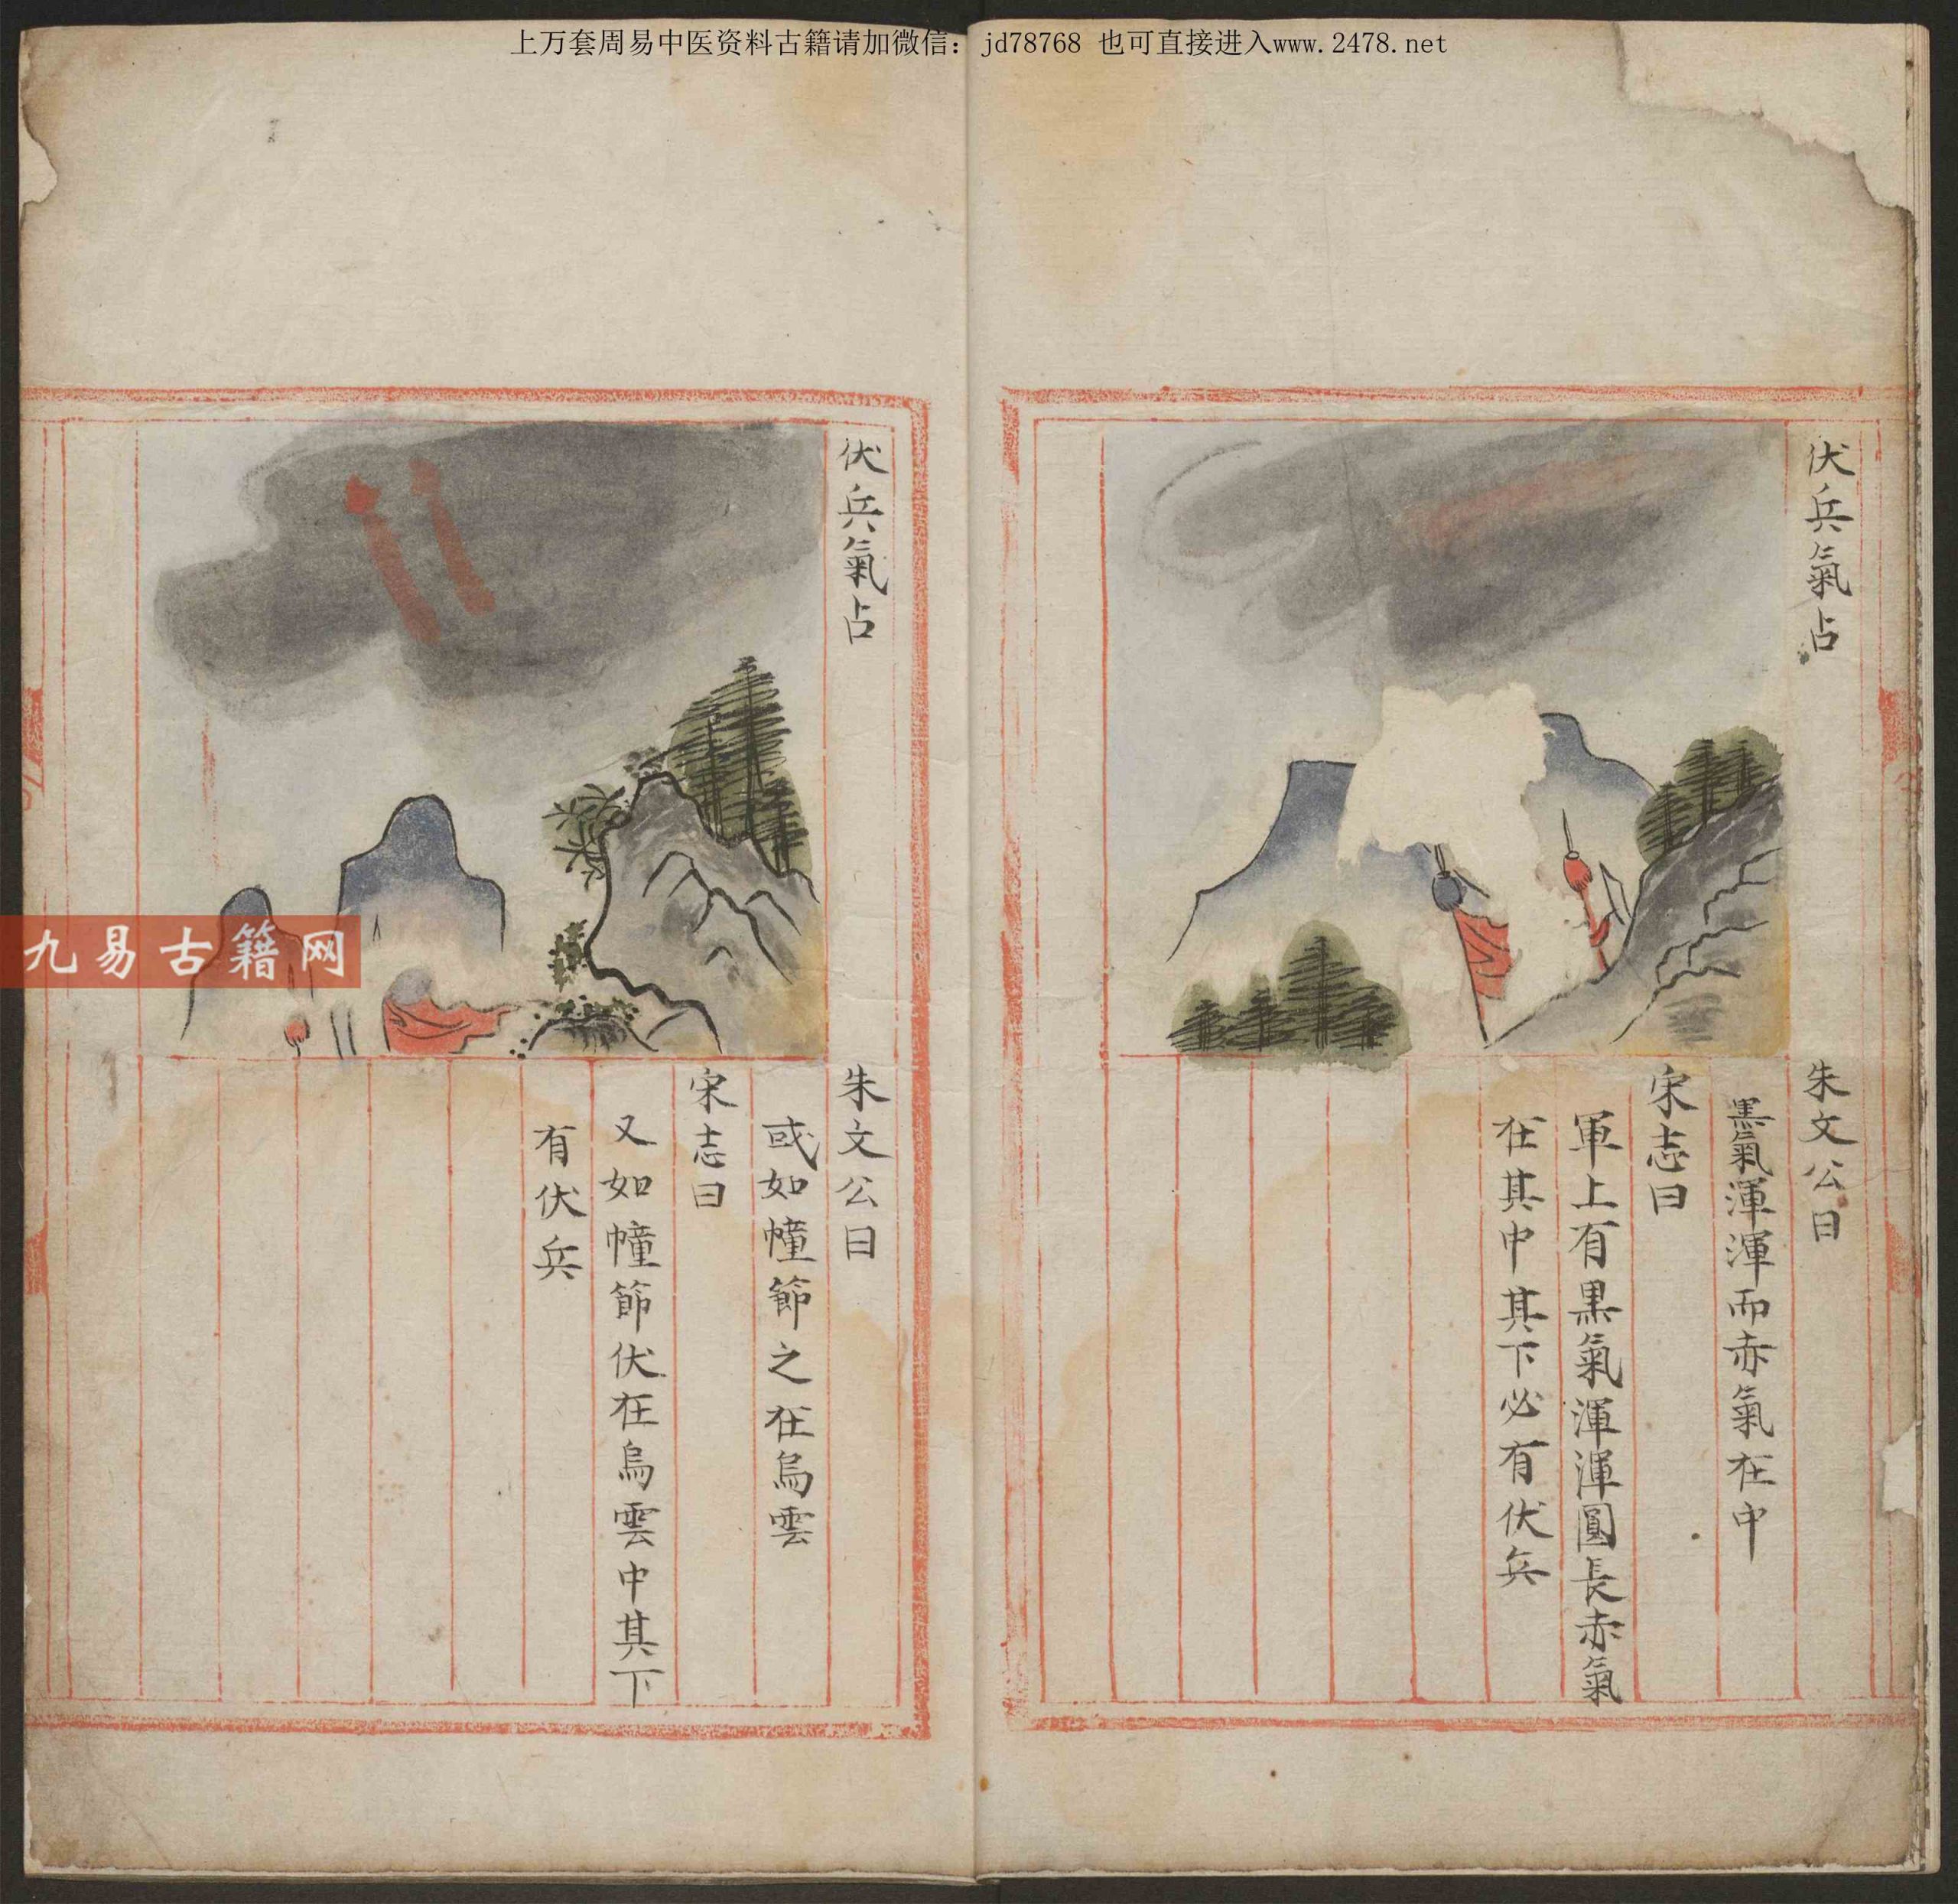 上万套周易中医资料古籍请加微信：jd78768 也可直接进入www.2478.net
伏兵氣占
朱文公曰
黑氣渾渾而赤氣在中
宋志曰
軍上有黑氣渾渾圓長赤氣
在其中其下必有伏兵
伏兵氣占
朱文公曰
或如幢節之在烏雲
宋志曰
又如幢節伏在烏雲中其下
有伏兵
九易古籍网